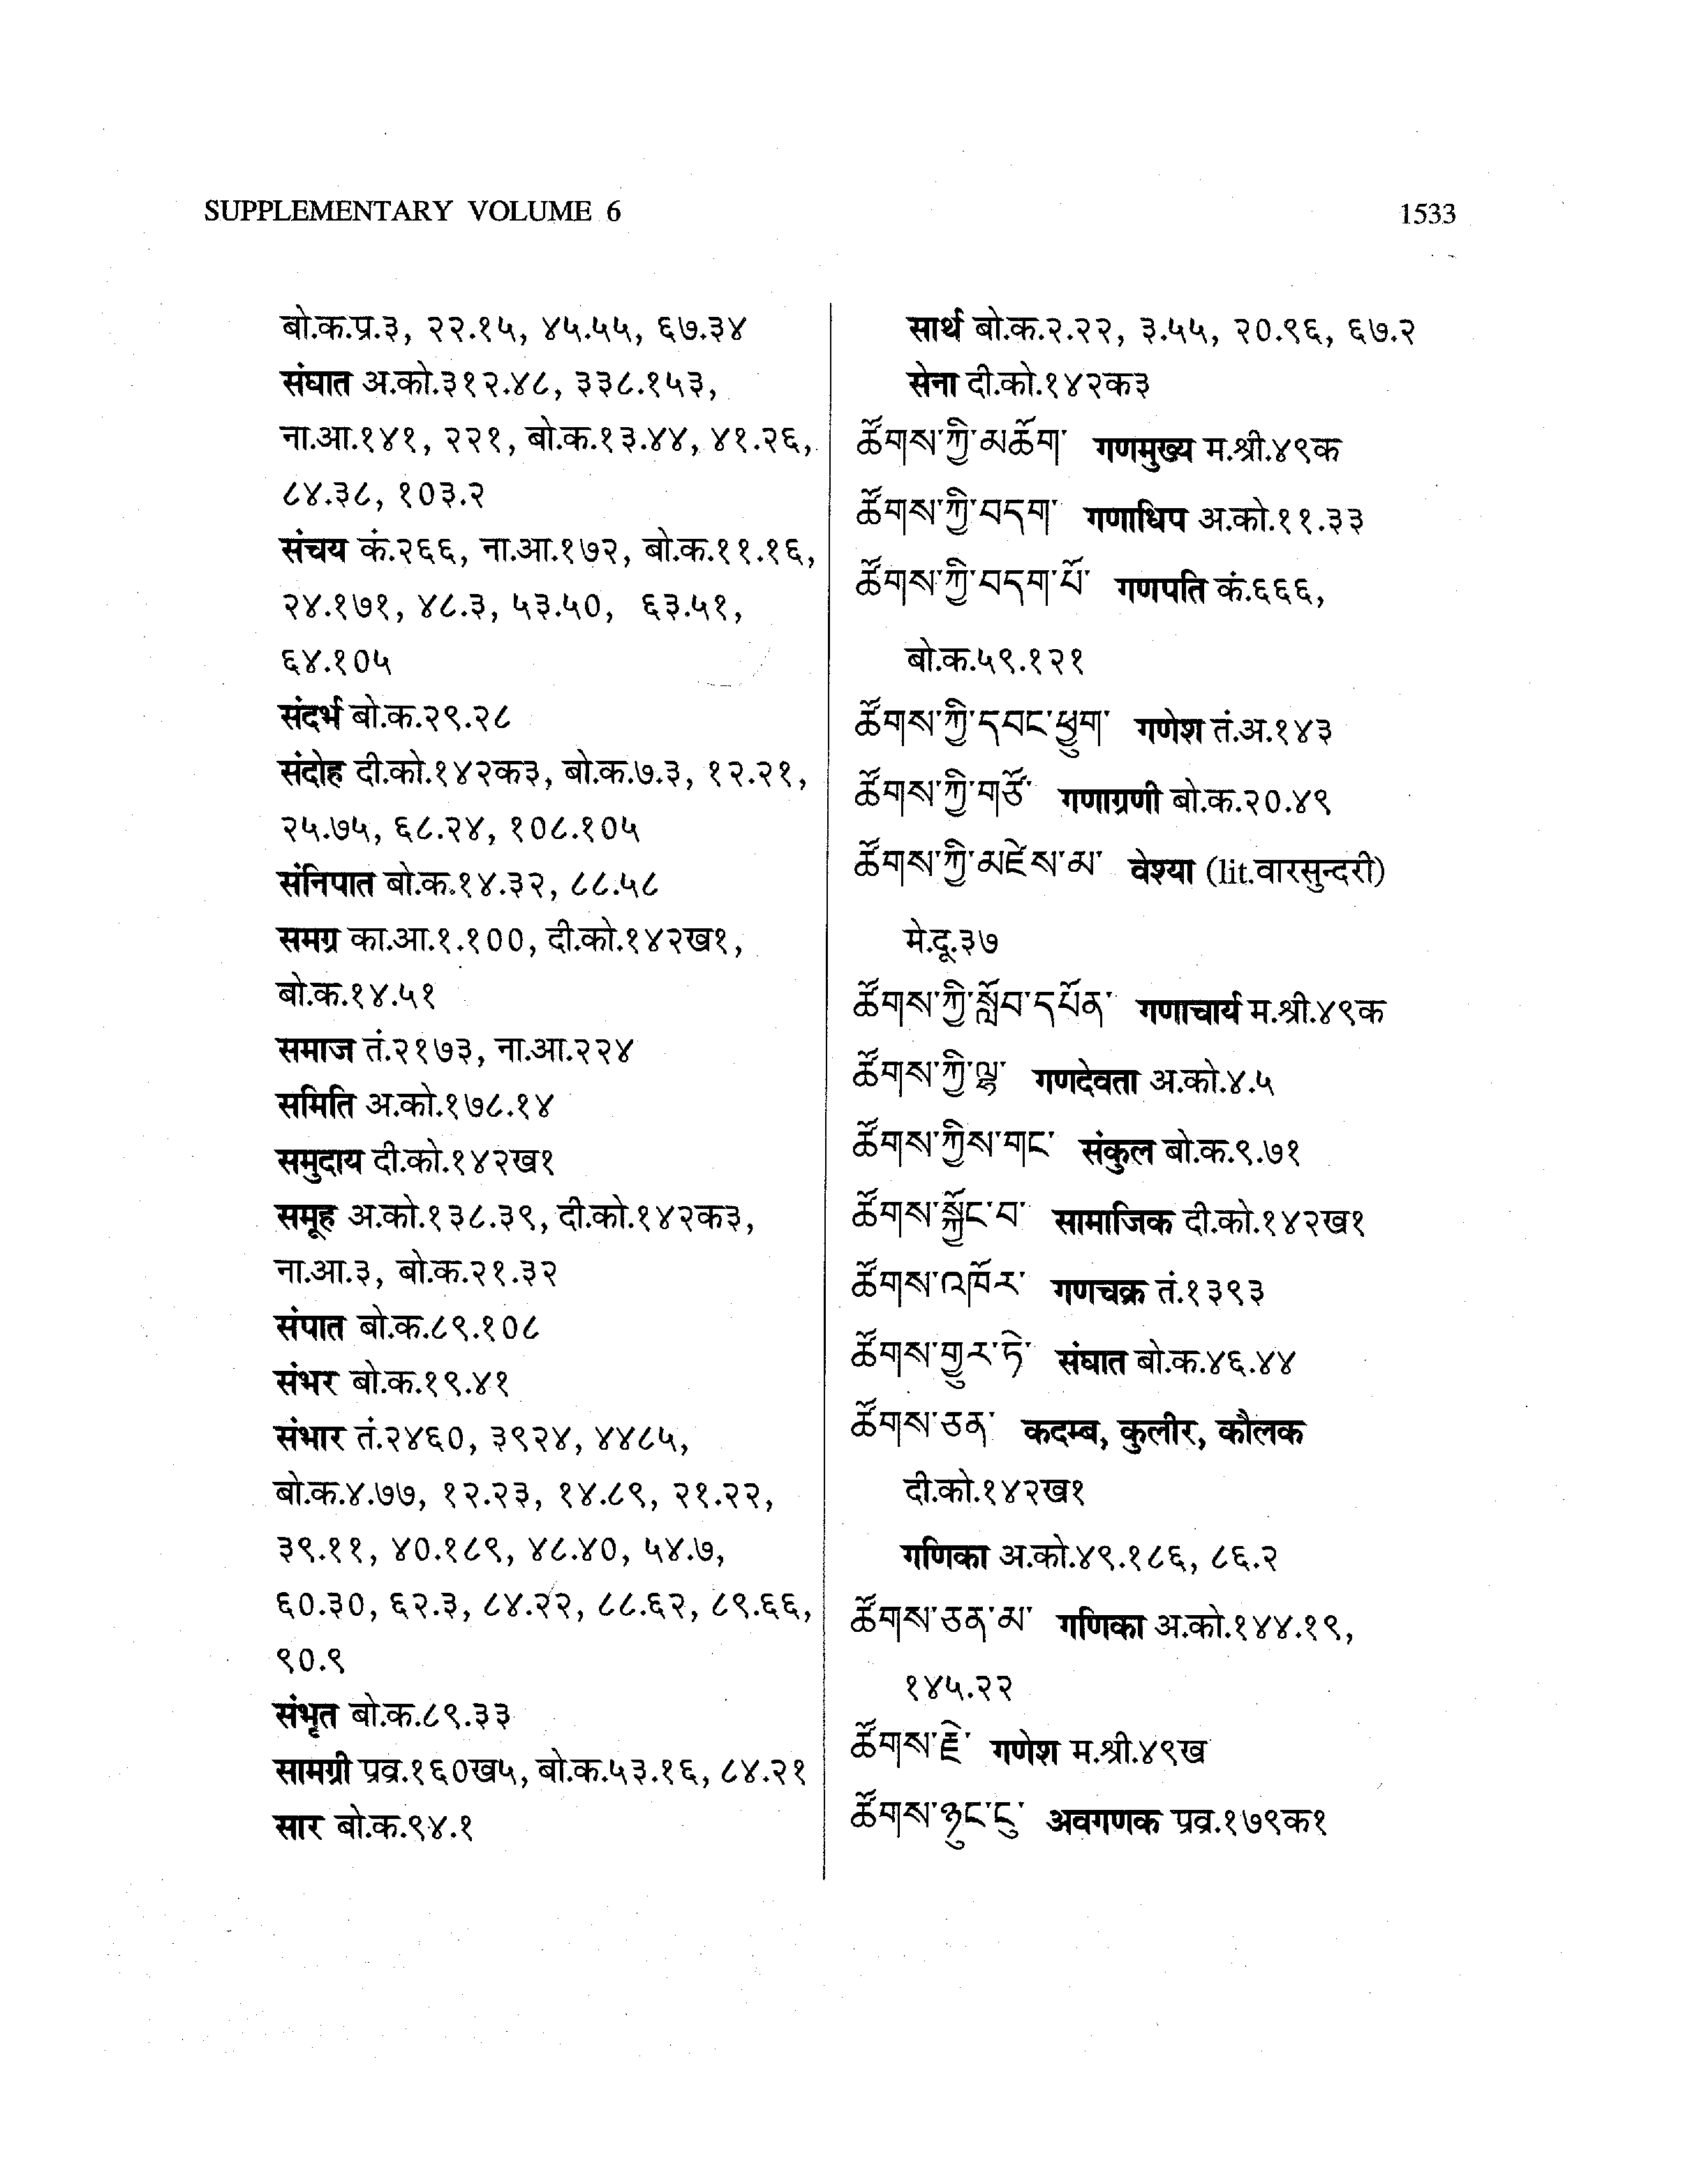 SUPPLEMENTARY VOLUME 6
1533
बो.क.प्र.३, २२.१५, ४५.५५, ६७.३४
संघात अ.को.३१२.४८, ३३८.१५३,
ना.आ.१४१, २२१, बो.क.१३.४४, ४१.२६,
८४.३८, १०३.२
संचय कं.२६६, ना.आ.१७२, बो.क.११.१६,
२४.१७१, ४८.३, ५३.५०, ६३.५१,
६४.१०५
संदर्भ बो.क.२९.२८
संदोह दी.को.१४२क३, बो.क.७.३, १२.२१,
२५.७५, ६८.२४, १०८.१०५
संनिपात बो.क.१४.३२, ८८.५८
समग्र का.आ.१.१००, दी.को.१४२ख१,
बो.क.१४.५१
समाज तं.२१७३, ना.आ.२२४
समिति अ.को.१७८.१४
समुदाय दी.को.१४२ख१
समूह अ.को.१३८.३९, दी.को.१४२क३,
ना.आ.३, बो.क.२१.३२
संपात बो.क.८९.१०८
संभर बो.क.१९.४१
संभार तं.२४६०, ३९२४, ४४८५,
बो.क.४.७७, १२.२३, १४.८९, २१.२२,
३९.११, ४०.१८९, ४८.४०, ५४.७,
६०.३०, ६२.३, ८४.२२, ८८.६२, ८९.६६,
९०.९
संभृत बो.क.८९.३३
सामग्री प्रव्र.१६०ख५, बो.क.५३.१६, ८४.२१
सार बो.क.९४.१
सार्थ बो.क.२.२२, ३.५५, २०.९६, ६७.२
सेना दी.को.१४२क३
ཚོགས་ཀྱི་མཆོག་ गणमुख्य म.श्री.४९क
ཚོགས་ཀྱི་བདག་ गणाधिप अ.को.११.३३
ཚོགས་ཀྱི་བདག་པོ་ गणपति कं.६६६,
बो.क.५९.१२१
ཚོགས་ཀྱི་དབང་ཕྱུག་ गणेश तं.अ.१४३
ཚོགས་ཀྱི་གཙོ་ गणाग्रणी बो.क.२०.४९
ཚོགས་ཀྱི་མཛེས་མ་ वेश्या (lit.वारसुन्दरी)
मे.दू.३७
ཚོགས་ཀྱི་སློབ་དཔོན་ गणाचार्य म.श्री.४९क
ཚོགས་ཀྱི་ལྷ་ गणदेवता अ.को.४.५
ཚོགས་ཀྱིས་གང་ संकुल बो.क.९.७१
ཚོགས་སྐྱོང་བ་ सामाजिक दी.को.१४२ख१
ཚོགས་འཁོར་ गणचक्र तं.१३९३
ཚོགས་གྱུར་ཏེ་ संघात बो.क.४६.४४
ཚོགས་ཅན་ कदम्ब, कुलीर, कौलक
दी.को.१४२ख१
गणिका अ.को.४९.१८६, ८६.२
ཚོགས་ཅན་མ་ गणिका अ.को.१४४.१९,
१४५.२२
ཚོགས་རྗེ་ गणेश म.श्री.४९ख
ཚོགས་ཉུང་ངུ་ अवगणक प्रव्र.१७९क१